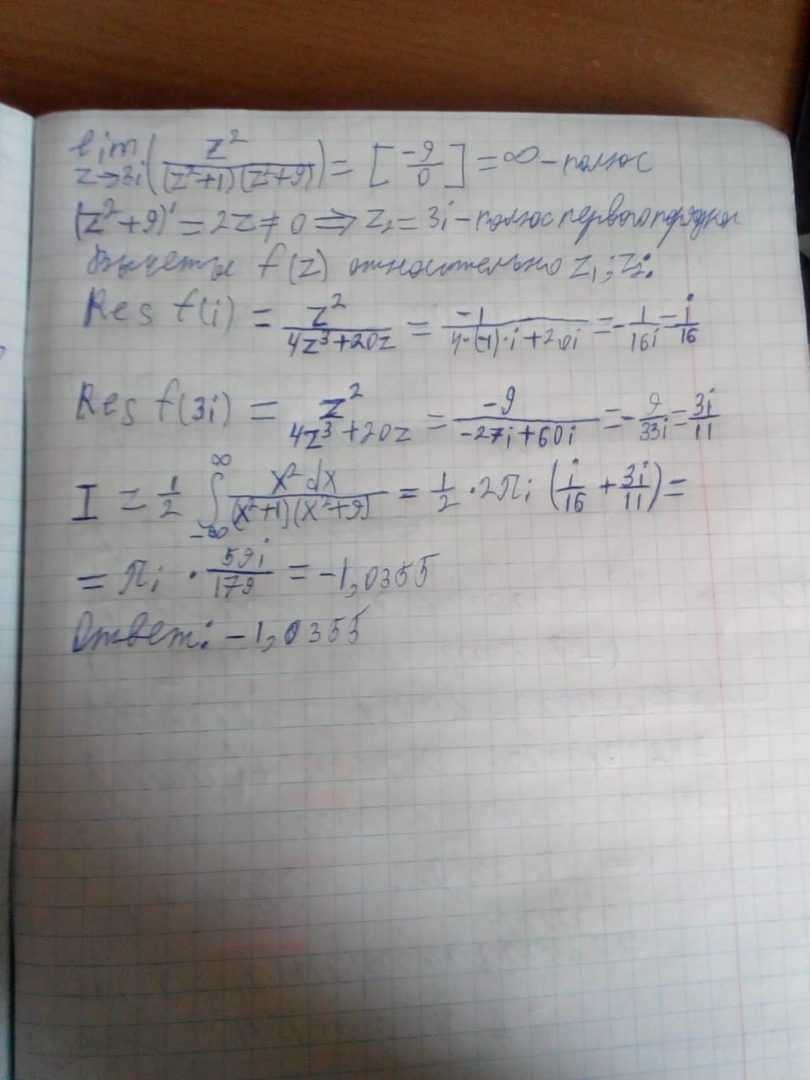 lim z→3i (z²/((z²+1)(z²+9))) = [-9/0] = ∞ - полюс
(z²+9)' = 2z ≠ 0 ⇒ z₂ = 3i - полюс первого порядка
Вычеты f(z) относительно z₁; z₂:
Res f(i) = z²/(4z³+20z) = -1/(4·(-1)·i+20i) = -1/16i = i/16
Res f(3i) = z²/(4z³+20z) = -9/(-27i+60i) = -9/33i = 3i/11
I = 1/2 ∫_{-∞}^{∞} x²dx/((x²+1)(x²+9)) = 1/2 · 2πi (i/16 + 3i/11) =
= πi · 59i/179 = -1,0355
Ответ: -1,0355